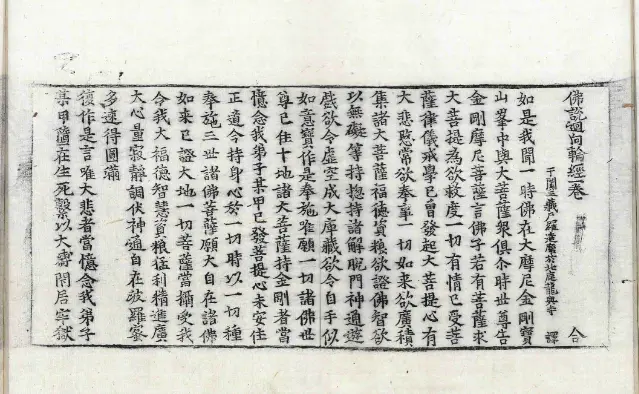 佛說迴向輪經一卷 合
于闐三藏尸羅達摩於北庭龍興寺譯
如是我聞一時佛在大摩尼金剛寶
山峯中與大菩薩衆俱尒時世尊告
金剛摩尼菩薩言佛子若有菩薩求
大菩提為欲救度一切有情已受菩
薩律儀戒學已曾發起大菩提心有
大悲愍常欲奉事一切如來欲廣積
集諸大菩薩福德資粮欲證佛智欲
以無礙等持揔持諸解脫門神通遊
戲欲令虛空成大庫藏欲令自手似
如意寶作是奉施唯願一切諸佛世
尊已住十地諸大菩薩持金剛者當
憶念我弟子某甲已發菩提心未安住
正道今持身心於一切時以一切種
奉施三世諸佛菩薩願大自在諸佛
如來已證大地一切菩薩當攝受我
令我大福德智慧資粮猛利精進廣
大心量寂靜調伏神通自在波羅蜜
多速得圓滿
復作是言唯大悲者當憶念我弟子
某甲簉在生死繫以大壽閇居牢獄